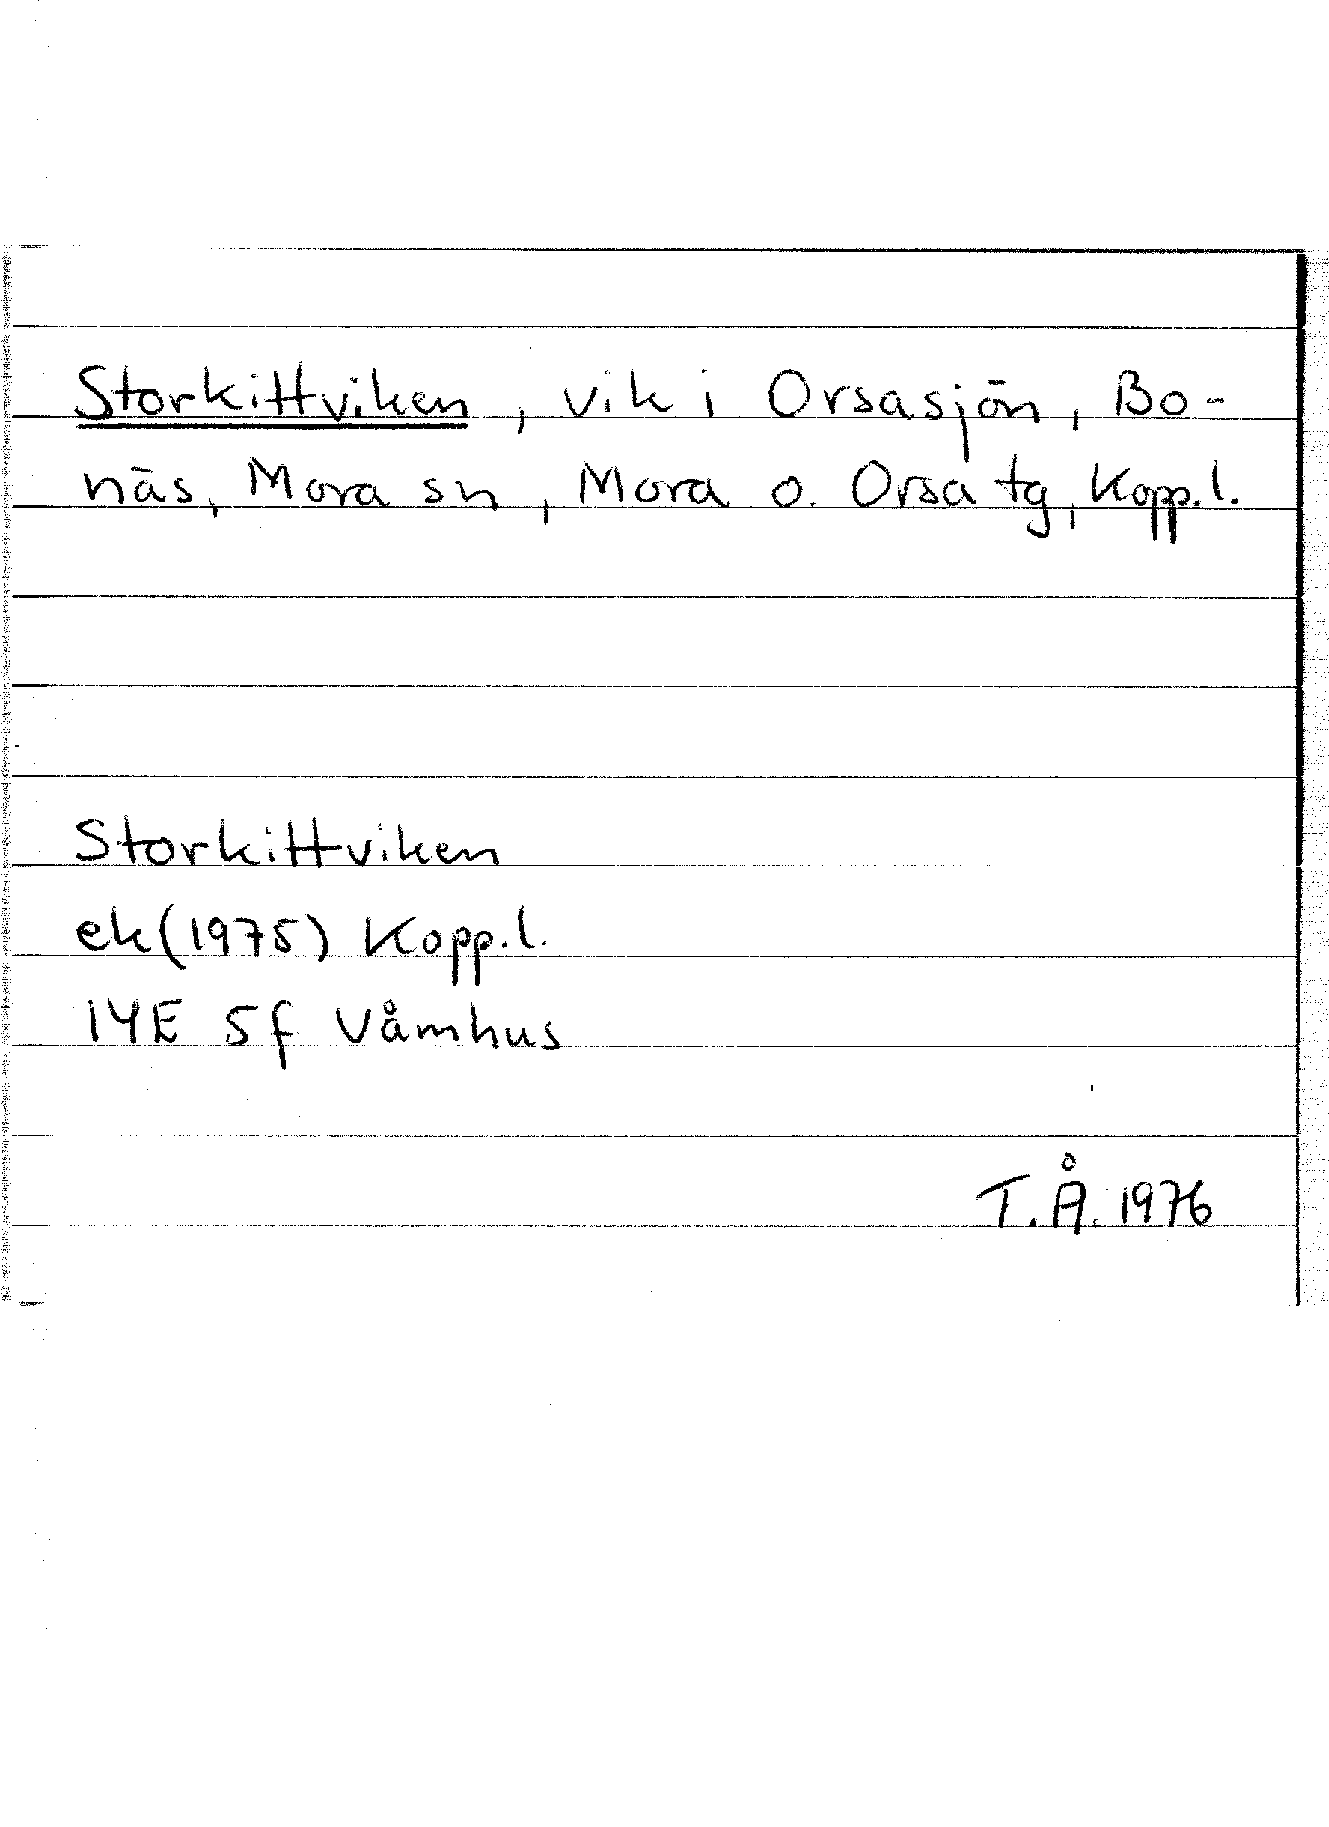 Storkittviken, vik i Orsasjön, Bo-
näs, Mora sn, Mora o. Orsa tg, Kopp.l.
Storkittviken
ek(1975) Kopp.l.
14E 5f Våmhus
T.Å. 1976